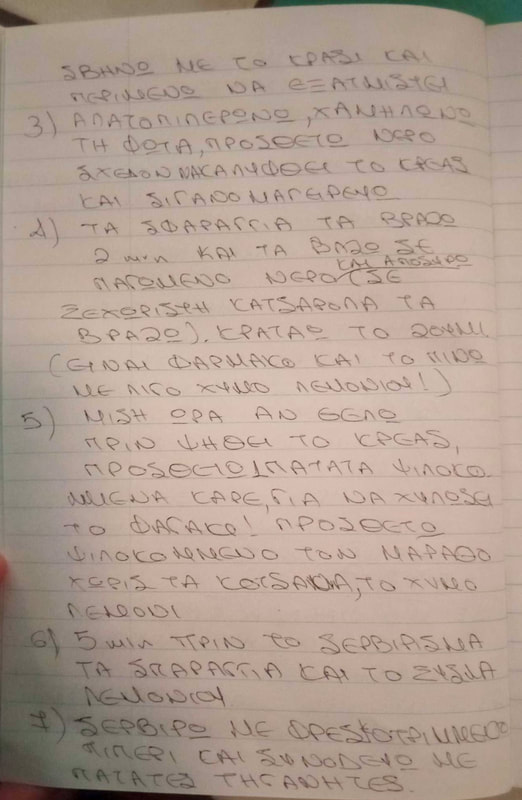 ΣΒΗΝΩ ΜΕ ΤΟ ΚΡΑΣΙ ΚΑΙ
ΠΕΡΙΜΕΝΩ ΝΑ ΕΞΑΤΜΙΣΤΕΙ
3) ΑΛΑΤΟΠΙΠΕΡΩΝΩ, ΧΑΜΗΛΩΝΩ
ΤΗ ΦΩΤΑ, ΠΡΟΣΘΕΤΩ ΝΕΡΟ
ΣΧΕΔΟΝ ΝΑ ΚΑΛΥΦΘΕΙ ΤΟ ΚΡΕΑΣ
ΚΑΙ ΣΙΓΑΝΟΜΑΓΕΙΡΕΥΩ
4) ΤΑ ΣΦΑΡΑΓΓΙΑ ΤΑ ΒΡΑΖΩ
2 min ΚΑΙ ΤΑ ΒΓΑΖΩ ΣΕ
ΚΑΙ ΑΠΟΣΥΡΩ
ΠΑΓΩΜΕΝΟ ΝΕΡΟ (ΣΕ
ΞΕΧΩΡΙΣΤΗ ΚΑΤΣΑΡΟΛΑ ΤΑ
ΒΡΑΖΩ). ΚΡΑΤΑΩ ΤΟ ΖΟΥΜΙ.
(ΕΙΝΑΙ ΦΑΡΜΑΚΟ ΚΑΙ ΤΟ ΠΙΝΩ
ΜΕ ΛΙΓΟ ΧΥΜΟ ΛΕΜΟΝΙΟΥ!)
5) ΜΙΣΗ ΩΡΑ ΑΝ ΘΕΛΩ
ΠΡΙΝ ΨΗΘΕΙ ΤΟ ΚΡΕΑΣ,
ΠΡΟΣΘΕΤΩ 1 ΠΑΤΑΤΑ ΨΙΛΟΚΟ-
ΜΜΕΝΑ ΚΑΡΕ, ΓΙΑ ΝΑ ΧΥΛΩΣΕΙ
ΤΟ ΦΑΓΑΚΙ! ΠΡΟΣΘΕΤΩ
ΨΙΛΟΚΟΜΜΕΝΟ ΤΟΝ ΜΑΡΑΘΟ
ΧΩΡΙΣ ΤΑ ΚΟΤΣΑΝΙΑ, ΤΟ ΧΥΜΟ
ΛΕΜΟΝΙ
6) 5 min ΠΡΙΝ ΤΟ ΣΕΡΒΙΑΣΜΑ
ΤΑ ΣΠΑΡΑΓΓΙΑ ΚΑΙ ΤΟ ΞΥΣΜΑ
ΛΕΜΟΝΙΟΥ
7) ΣΕΡΒΙΡΩ ΜΕ ΦΡΕΣΚΟΤΡΙΜΜΕΝΟ
ΠΙΠΕΡΙ ΚΑΙ ΣΥΝΟΔΕΥΩ ΜΕ
ΠΑΤΑΤΕΣ ΤΗΓΑΝΗΤΕΣ.